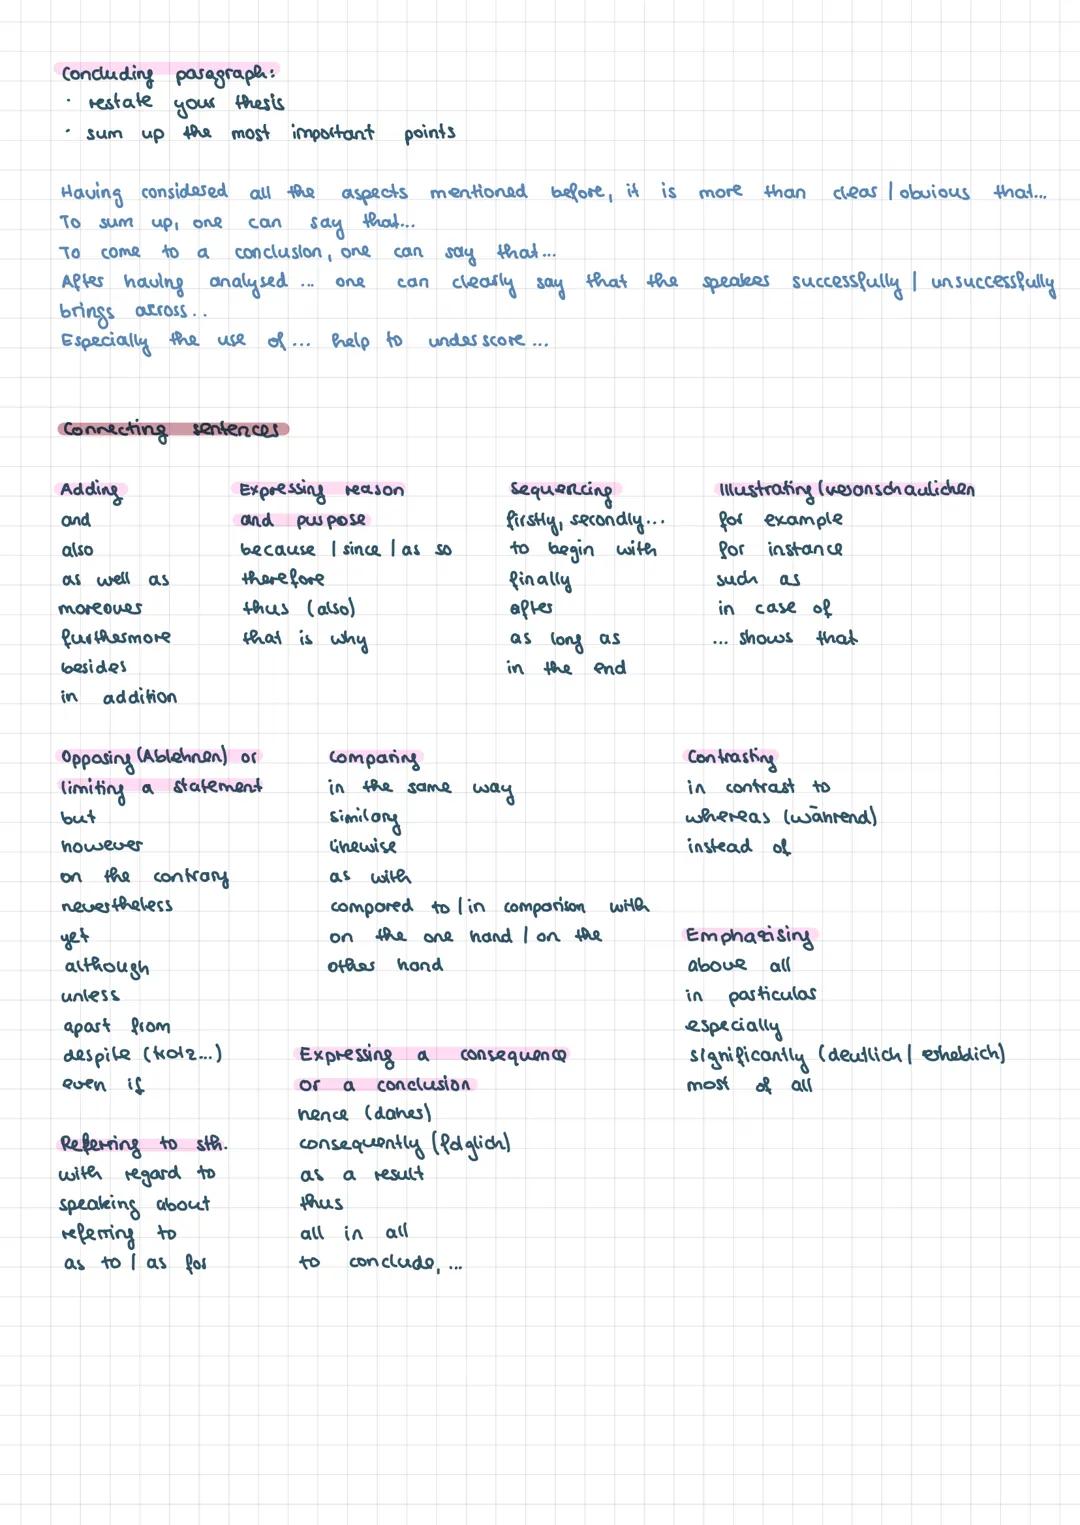 Concluding paragraph:
· restate your thesis
· sum up the most important points
Having considered all the aspects mentioned before, it is more than clear | obvious that...
To sum up, one can say that...
To come to a conclusion, one can say that...
After having analysed ... one can clearly say that the speaker successfully | unsuccessfully
brings across..
Especially the use of ... help to underscore ...
Connecting sentences
Adding
and
also
as well as
moreover
furthermore
besides
in addition
Expressing reason
and purpose
because | since | as so
therefore
thus (also)
that is why
Sequencing
firstly, secondly...
to begin with
finally
after
as long as
in the end
Illustrating (veranschaulichen
for example
for instance
such as
in case of
... shows that
Opposing (Ablehnen) or
limiting a statement
but
however
on the contrary
nevertheless
yet
although
unless
apart from
despite (trotz...)
even if
Comparing
in the same way
similary
likewise
as with
compared to | in comparison with
on the one hand | on the
other hand
Contrasting
in contrast to
whereas (während)
instead of
Emphazising
above all
in particular
especially
significantly (deutlich | erheblich)
most of all
Referring to sth.
with regard to
speaking about
referring to
as to | as for
Expressing a consequence
or a conclusion
hence (daher)
consequently (folglich)
as a result
thus
all in all
to conclude, ...